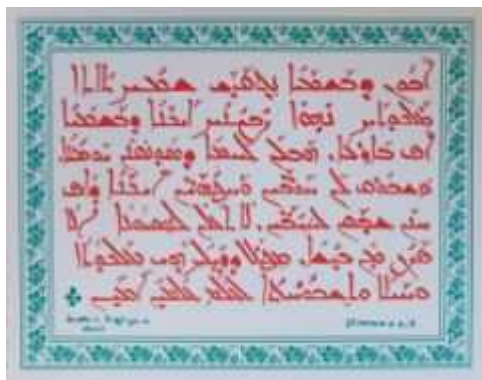 ܐܒܘܢ ܕܒܫܡܝܐ ܢܬܩܕܫ ܫܡܟ ܬܐܬܐ
ܡܠܟܘܬܟ ܢܗܘܐ ܨܒܝܢܟ ܐܝܟܢܐ ܕܒܫܡܝܐ
ܐܦ ܒܐܪܥܐ. ܗܒܠܢ ܠܚܡܐ ܕܣܘܢܩܢܢ ܝܘܡܢܐ
ܘܫܒܘܩ ܠܢ ܚܘܒܝܢ ܘܚܛܗܝܢ ܐܝܟܢܐ ܕܐܦ
ܚܢܢ ܫܒܩܢ ܠܚܝܒܝܢ. ܠܐ ܬܥܠܢ ܠܢܣܝܘܢܐ ܐܠܐ
ܦܨܢ ܡܢ ܒܝܫܐ. ܡܛܠ ܕܕܝܠܟ ܗܝ ܡܠܟܘܬܐ
ܘܚܝܠܐ ܘܬܫܒܘܚܬܐ ܠܥܠܡ ܥܠܡܝܢ ܐܡܝܢ